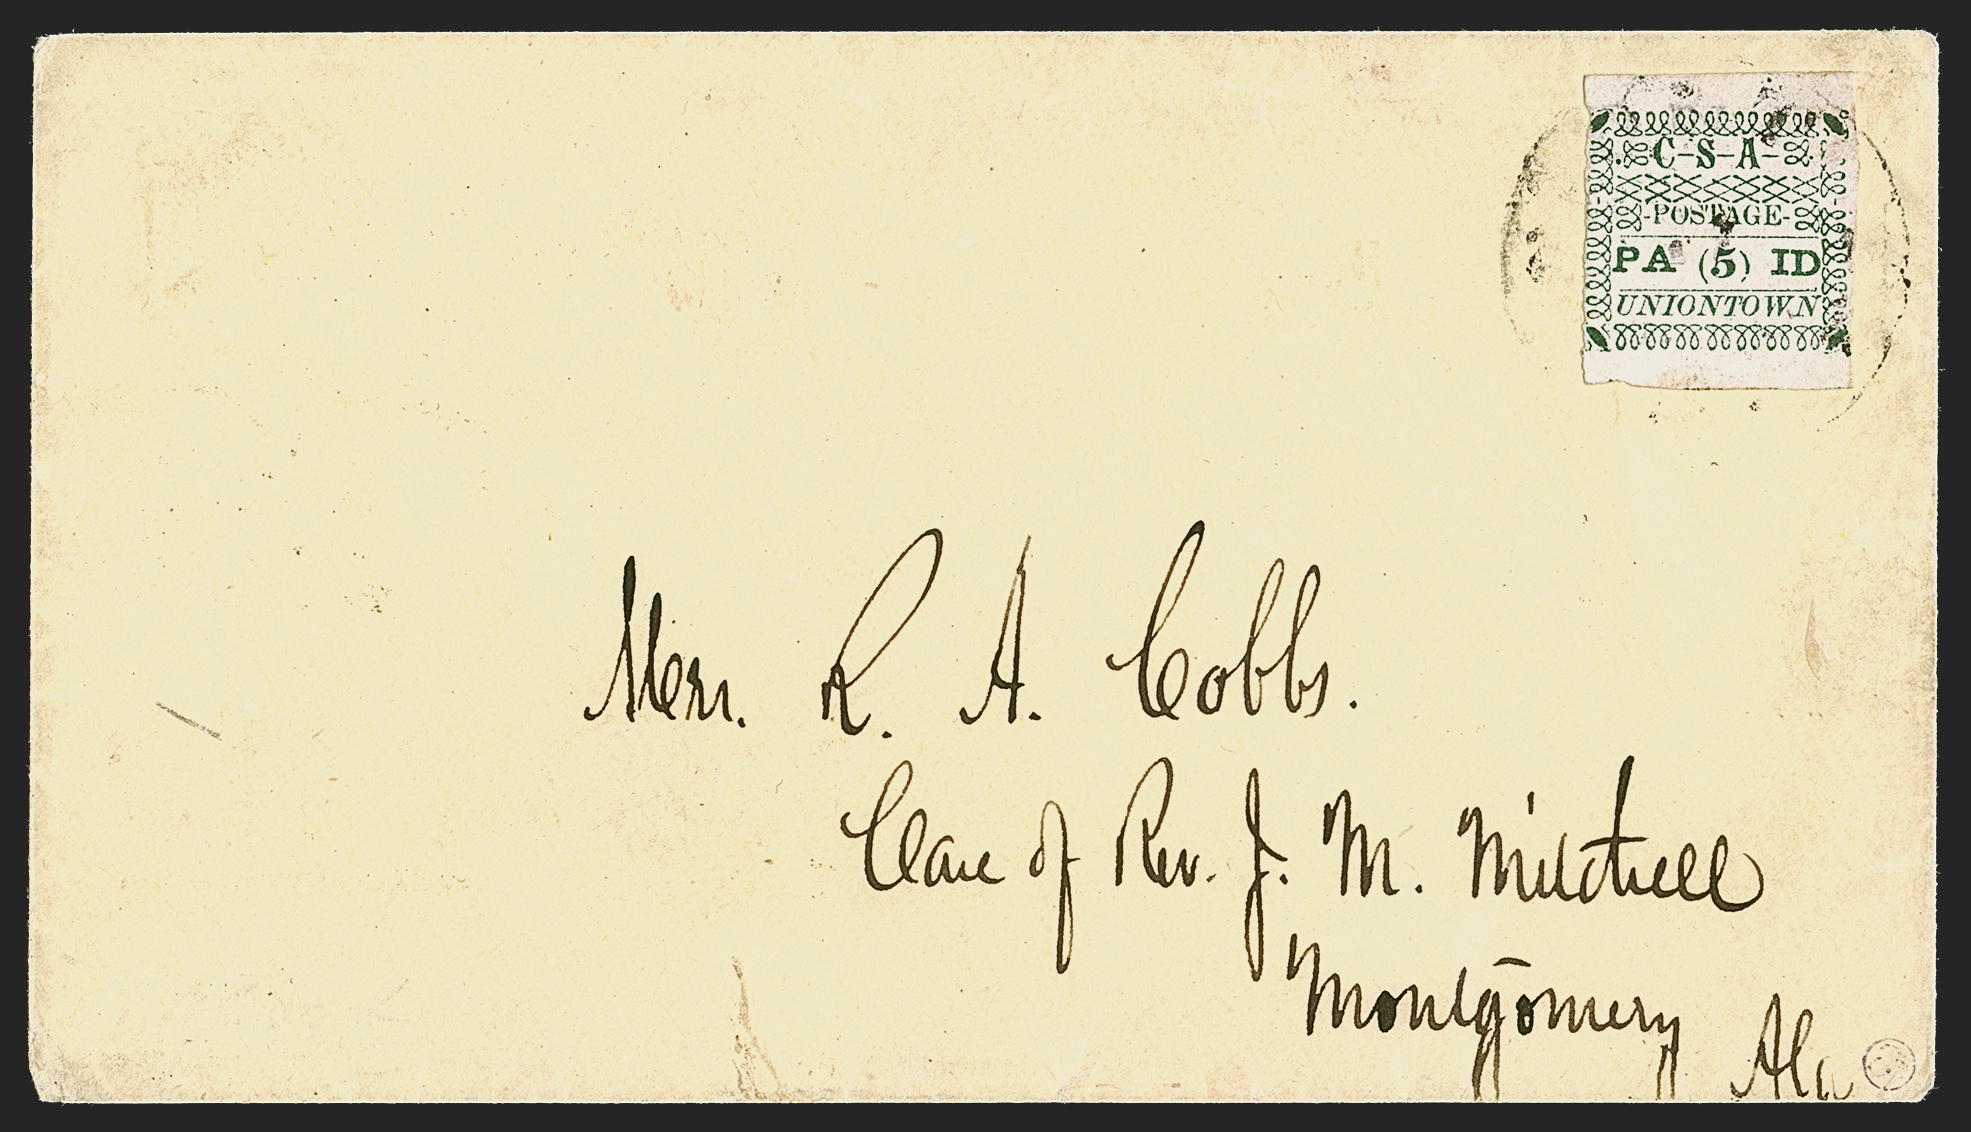 C-S-A-
-POSTAGE-
PA (5) ID
UNIONTOWN
R. A. Cobbs.
Care of Rev. J. M. Mitchell
Montgomery
Ala